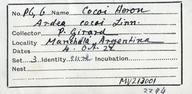 No. PG, 6 Name Cocoi Heron
Ardea cocoi Linn.
Collector P. Girard
Locality Argentina
Date 4. Oct. 24
Set 3 Identity Incubation
Nest
MV212001
2294